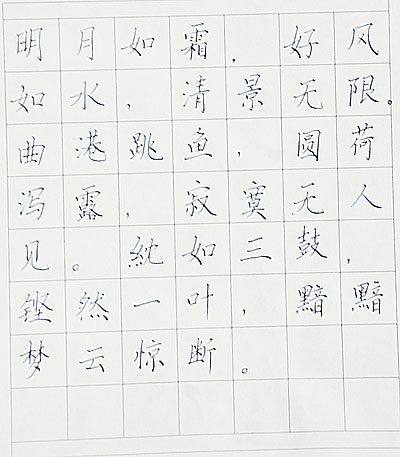 明月如霜,好风
如水,清景无限。
曲港跳鱼,圆荷
泻露,寂寞无人
见。紞如三鼓,
铿然一叶,黯黯
梦云惊断。